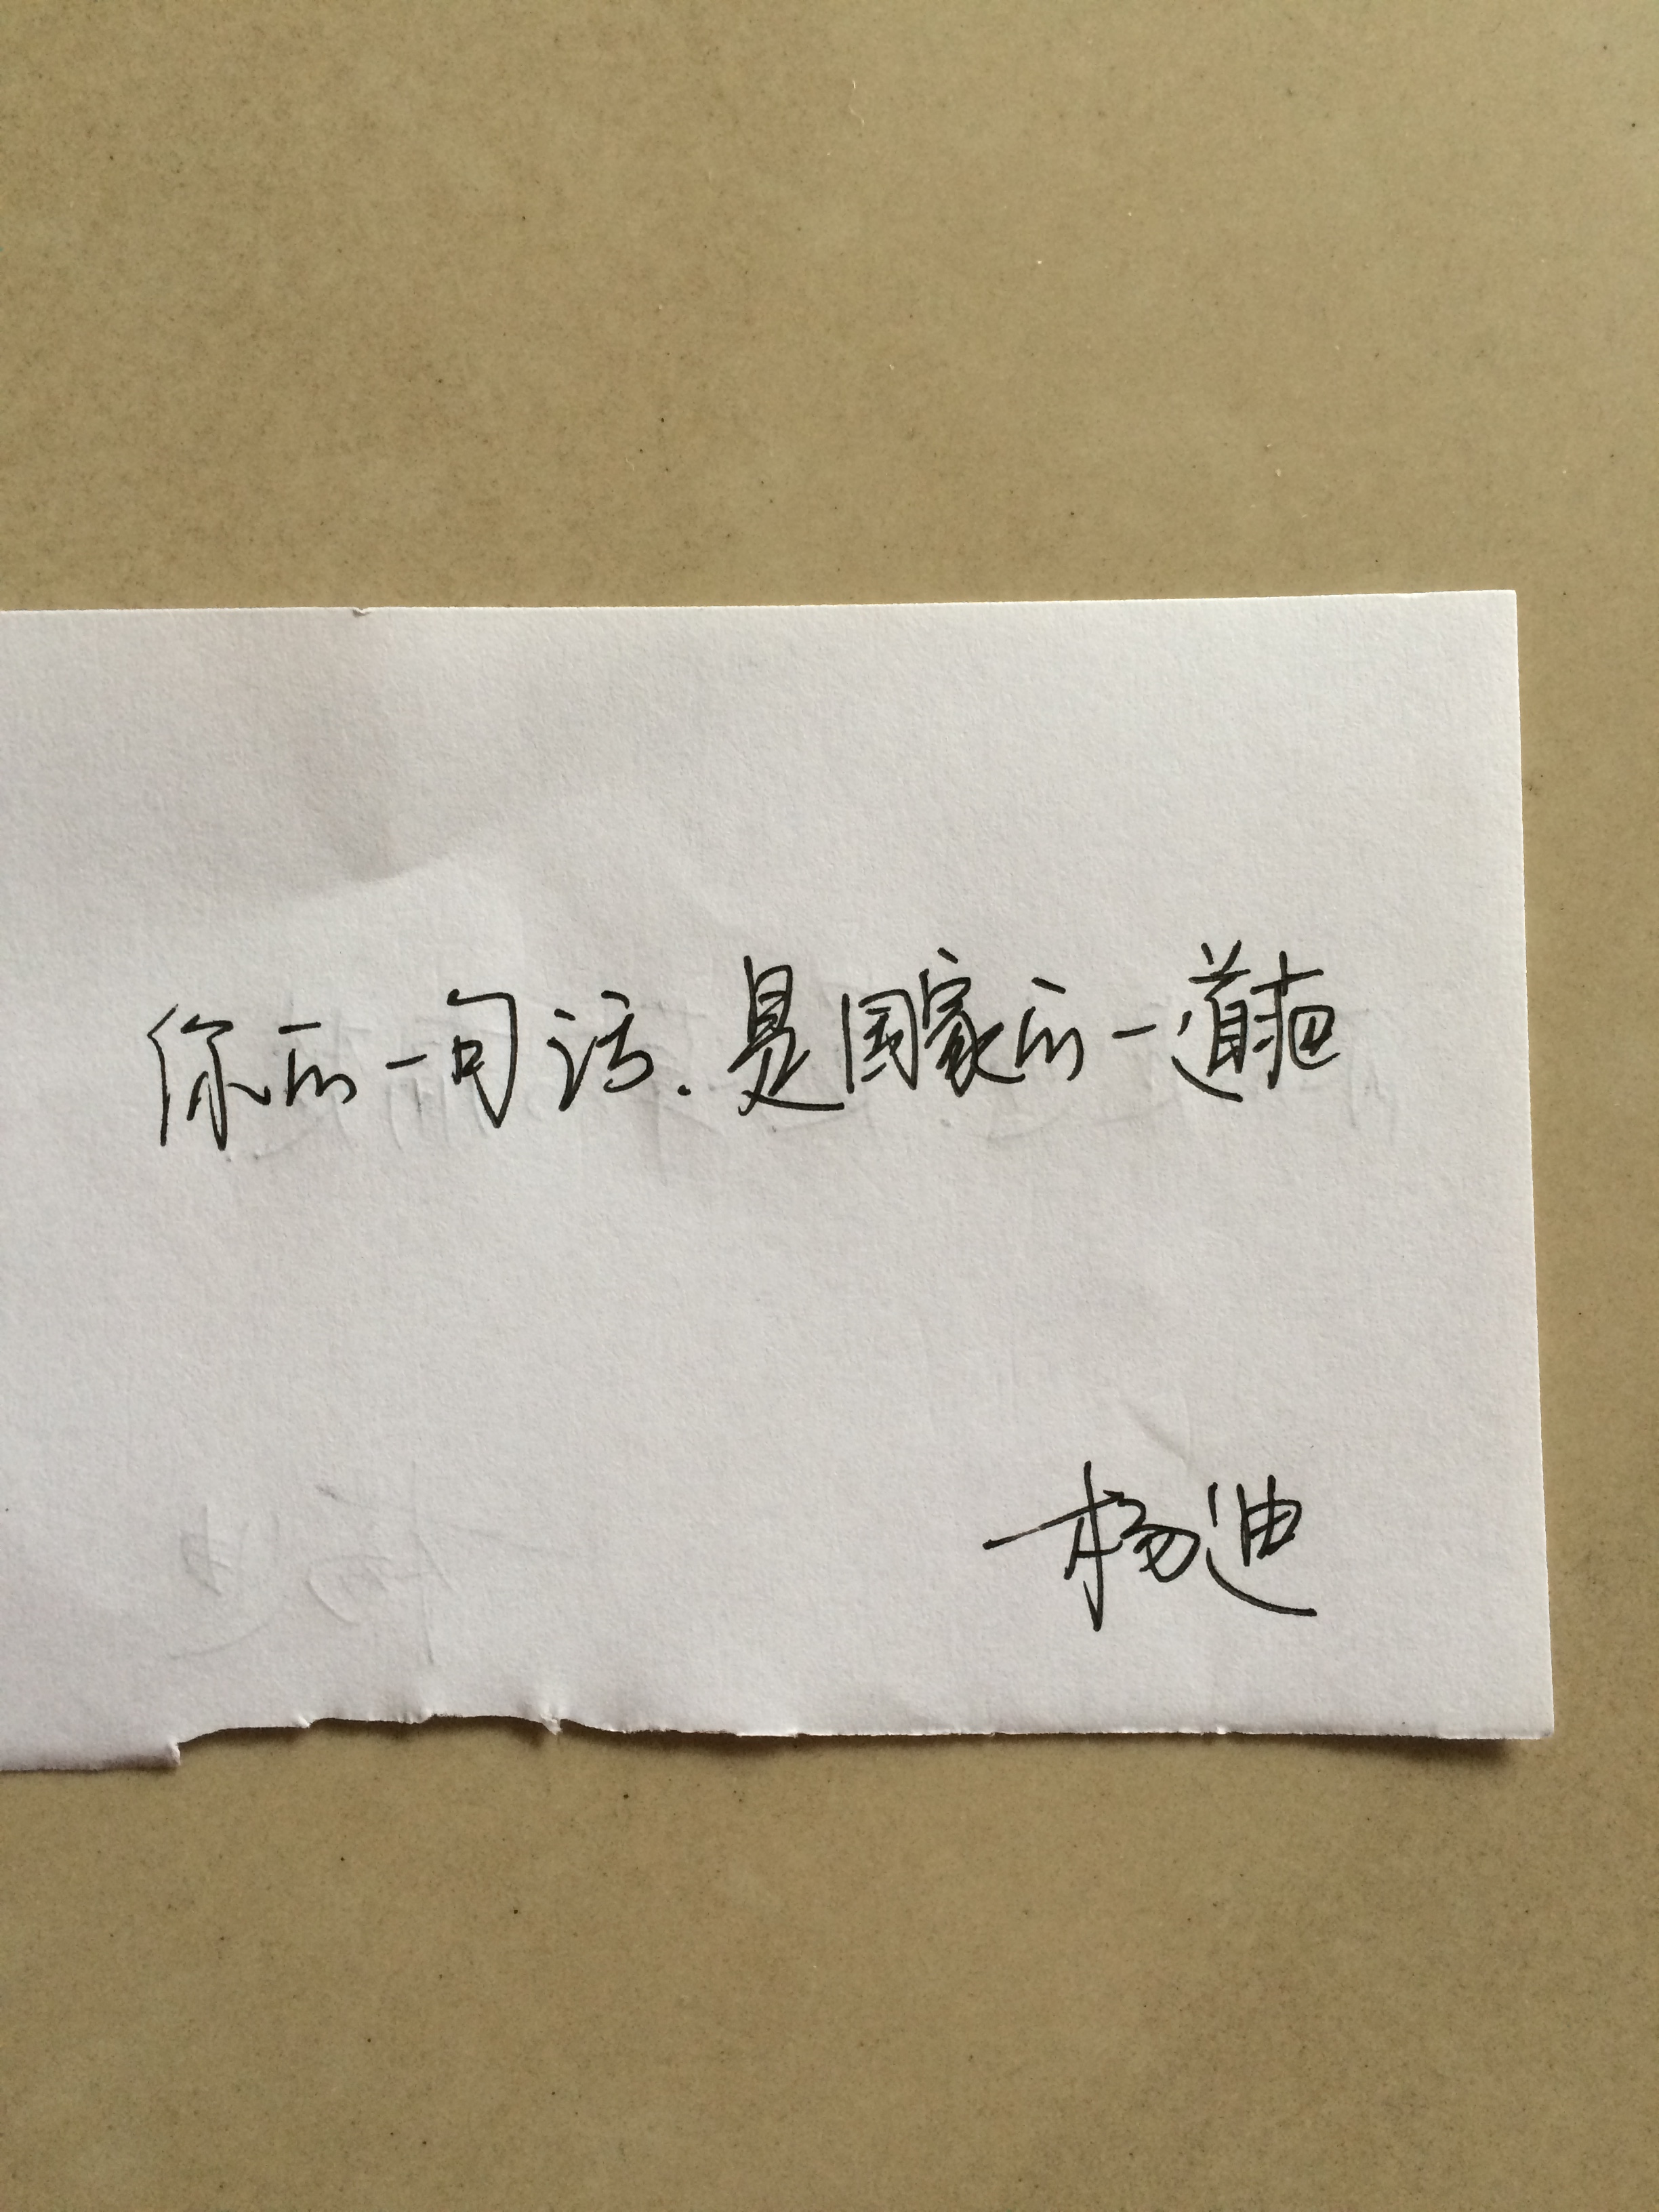 你的一句话.是国家的一道
—杨迪